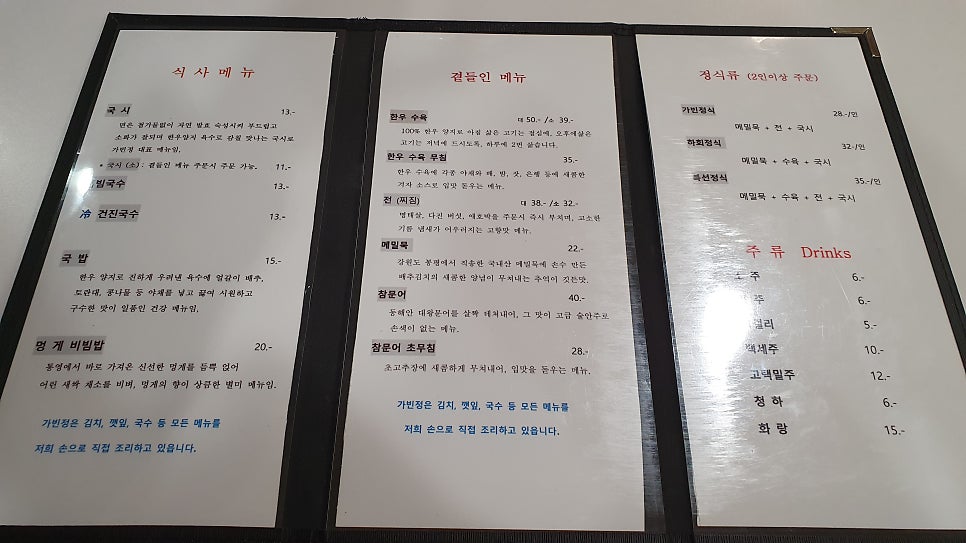 식 사 메 뉴
국 시 13.-
면은 첨가물없이 자연 발효 숙성시켜 부드럽고
소화가 잘되며 한우양지 육수로 감칠 맛나는 국시로
가빈정 대표 메뉴임.
* 국시 (소) : 곁들인 메뉴 주문시 주문 가능. 11.-
빔국수 13.-
冷 건진국수 13.-
국 밥 15.-
한우 양지로 진하게 우려낸 육수에 얼갈이 배추,
토란대, 콩나물 등 야채를 넣고 끓여 시원하고
구수한 맛이 일품인 건강 메뉴임.
멍 게 비빔밥 20.-
통영에서 바로 가져온 신선한 멍게를 듬뿍 얹어
어린 새싹 채소를 비벼, 멍게의 향이 상큼한 별미 메뉴임.
가빈정은 김치, 깻잎, 국수 등 모든 메뉴를
저희 손으로 직접 조리하고 있읍니다.
곁들인 메뉴
한우 수육 대 50.- /소 39.-
100% 한우 양지로 아침 삶은 고기는 점심에, 오후에삶은
고기는 저녁에 드시도록, 하루에 2번 삶습니다.
한우 수육 무침 35.-
한우 수육에 각종 야채와 배, 밤, 잣, 은행 등에 새콤한
겨자 소스로 입맛 돋우는 메뉴.
전 (찌짐) 대 38.- /소 32.-
명태살, 다진 버섯, 애호박을 주문시 즉시 부치며, 고소한
기름 냄새가 어우러지는 고향맛 메뉴.
메밀묵 22.-
강원도 봉평에서 직송한 국내산 메밀묵에 손수 만든
배추김치의 새콤한 양념이 무쳐내는 추억이 깃든맛.
참문어 40.-
동해안 대왕문어를 살짝 데쳐내어, 그 맛이 고급 술안주로
손색이 없는 메뉴.
참문어 초무침 28.-
초고추장에 새콤하게 무쳐내어, 입맛을 돋우는 메뉴.
가빈정은 김치, 깻잎, 국수 등 모든 메뉴를
저희 손으로 직접 조리하고 있읍니다.
정식류 (2인이상 주문)
가빈정식 28.-/인
메밀묵 + 전 + 국시
하회정식 32.-/인
메밀묵 + 수육 + 국시
선정식 35.-/인
메밀묵 + 수육 + 전 + 국시
주 류 Drinks
주 6.-
주 6.-
걸리 5.-
백세주 10.-
고택밀주 12.-
청 하 6.-
화 랑 15.-